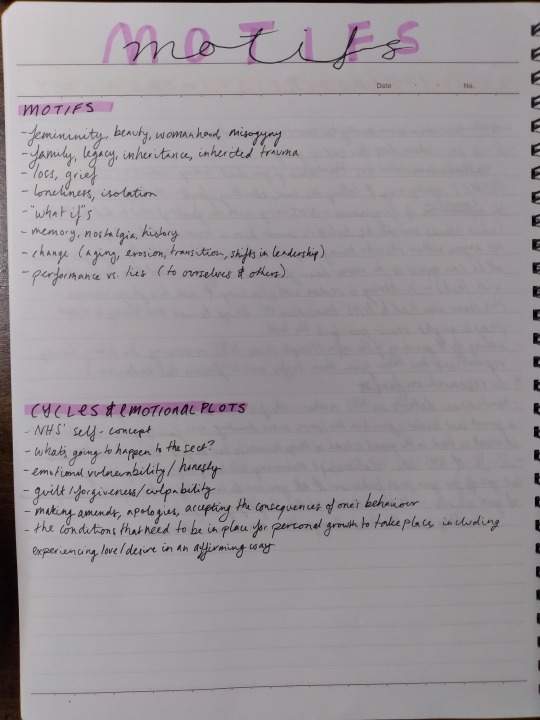 MOTIFS
motifs
Date . . No.
MOTIFS
- femininity, beauty, womanhood, misogyny
- family, legacy, inheritance, inherited trauma
- loss, grief
- loneliness, isolation
- "what if"s
- memory, nostalgia, history
- change (aging, erosion, transition, shifts in leadership)
- performance vs. lies (to ourselves & others)
CYCLES & EMOTIONAL PLOTS
- NHS' self-concept
- what's going to happen to the sect?
- emotional vulnerability / honesty
- guilt/forgiveness/culpability
- making amends, apologies, accepting the consequences of one's behaviour
- the conditions that need to be in place for personal growth to take place, including
experiencing love/desire in an affirming way